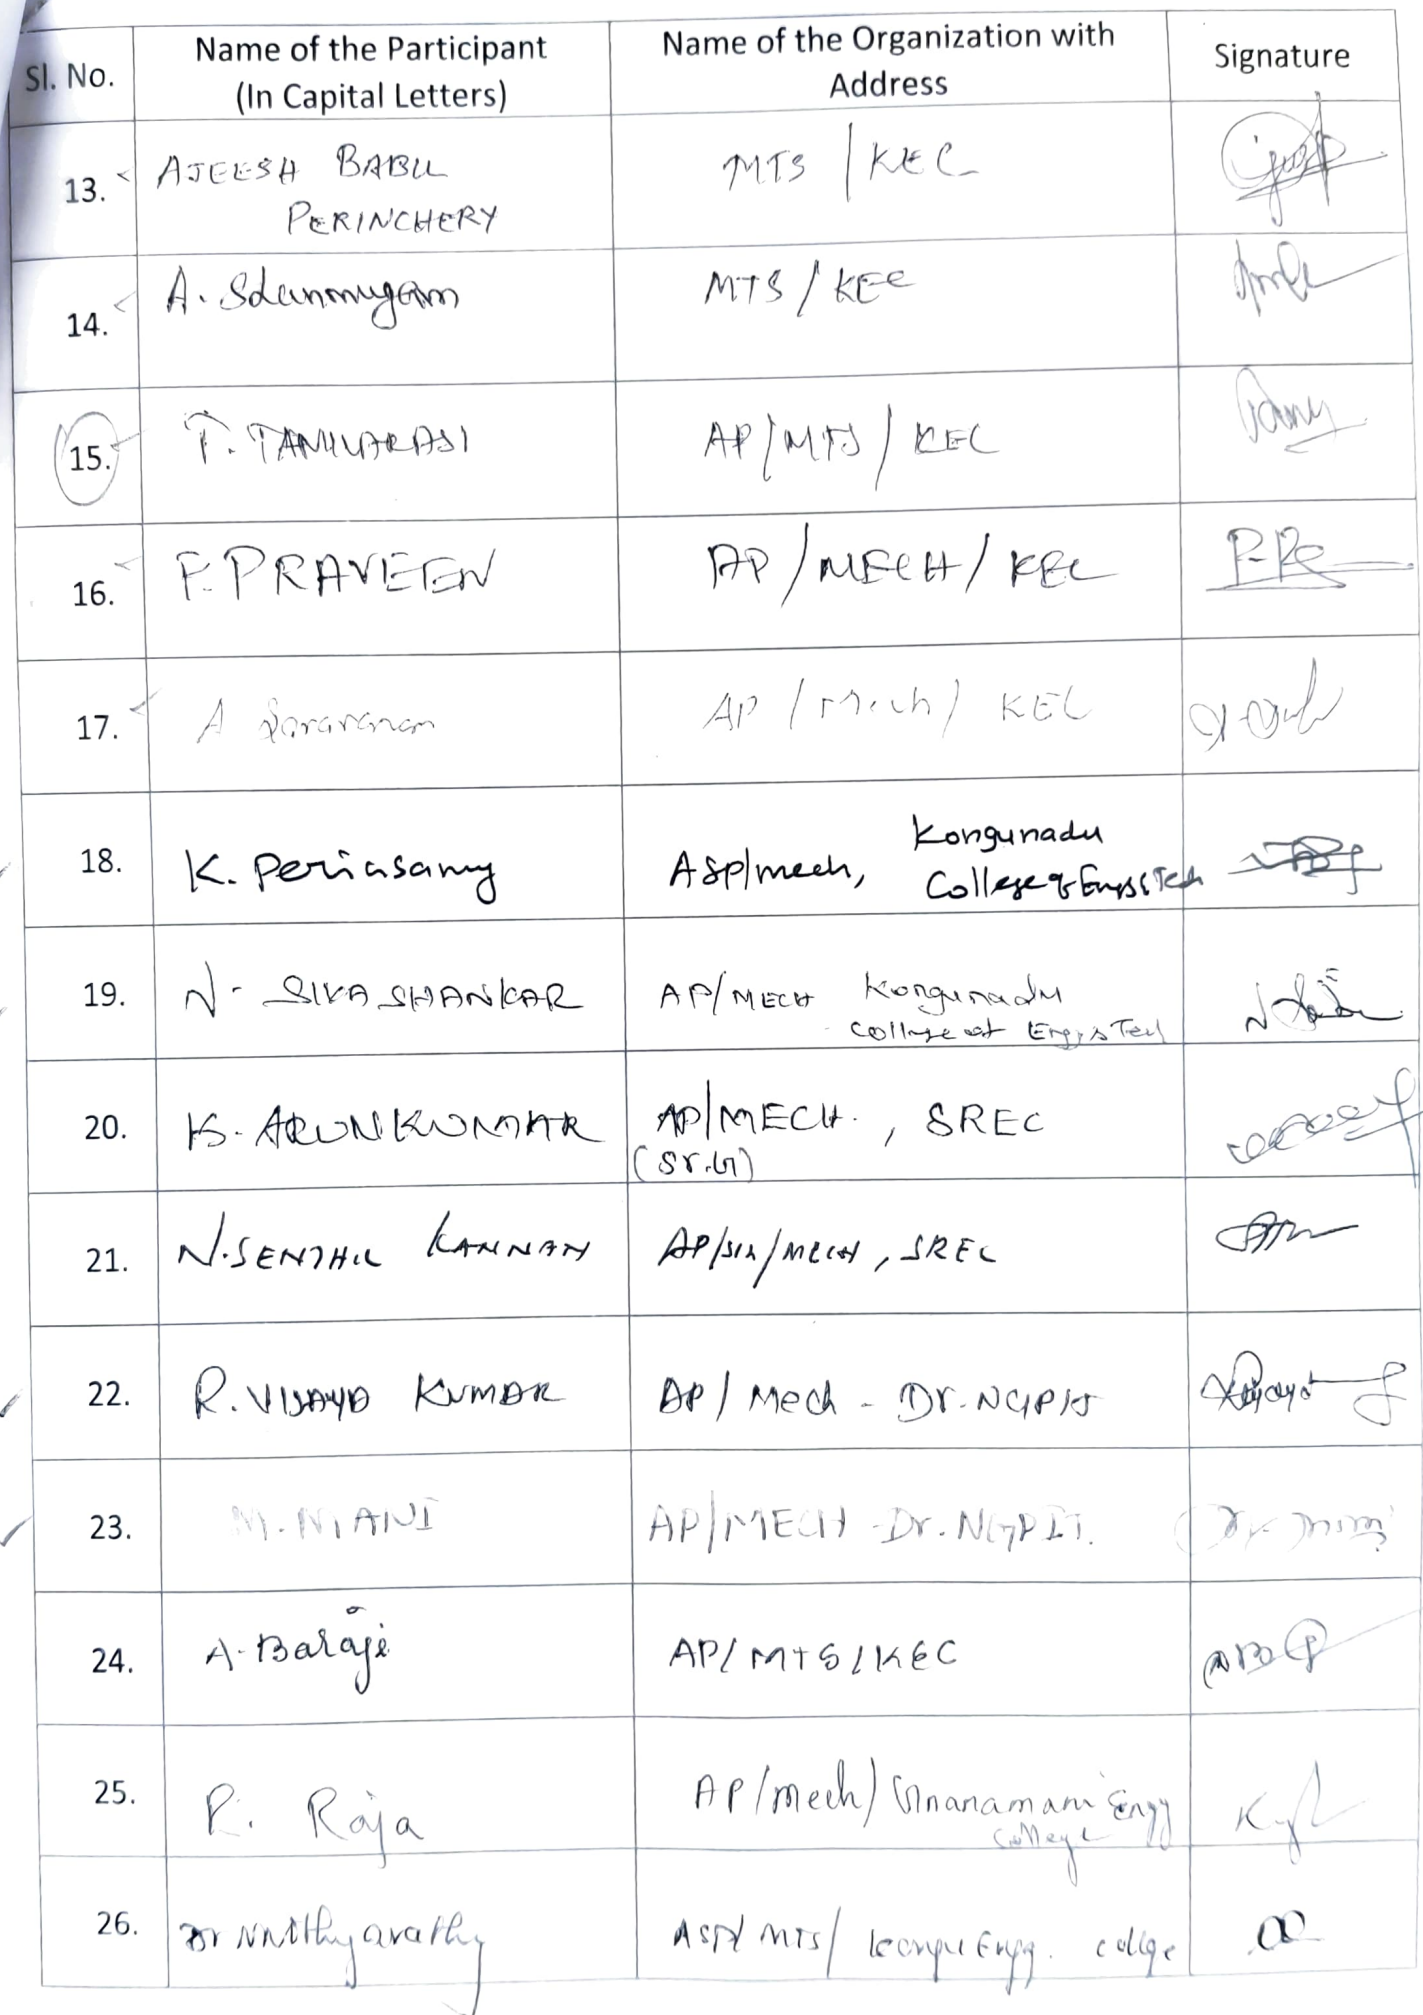 Sl. No. Name of the Participant Name of the Organization with Signature
(In Capital Letters) Address
13. AJEESH BABU MTS / KEC
PERINCHERY
14. A. Shanmugam MTS / KEC
15. T. TAMILARASI AP/MTS/KEC
16. P. PRAVEEN AP/MECH/KEC P-Pr
17. A Saravanan AP / Mech / KEC
18. K. Periasamy ASP/mech, Kongunadu
College of Engg & Tech
19. N. SIVA SHANKAR AP/MECH Kongunadu
College of Engg & Tech
20. K. ARUNKUMAR AP/MECH. , SREC
(Sr.G)
21. N. SENTHIL KANNAN AP/SrG/MECH, SREC
22. R. VIJAYA KUMAR AP/ Mech - Dr. NGPIT
23. M. MANI AP/MECH - Dr. NGPIT.
24. A. Balaji AP/MTS/KEC
25. R. Raja AP/Mech/ Gnanamani Engg
College
26. Dr ASP/ MTS/ Kongu Engg. college